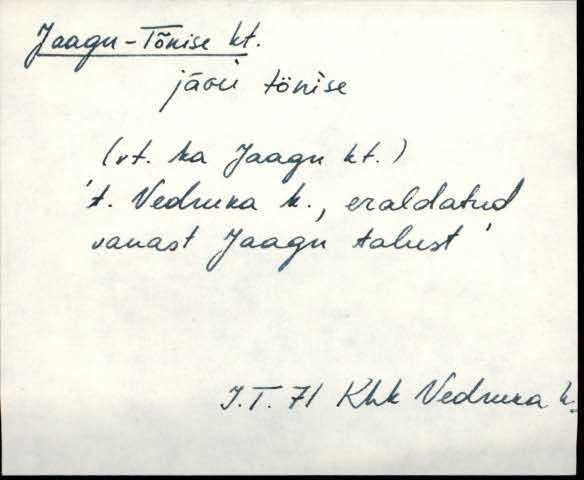 Jaagu-Tõnise kt.
jāoũ tõnise
(vt. ka Jaagu kt.)
't. Vedruka k., eraldatud
vanast Jaagu talust'
J.T. 71 Khk Vedruka k.